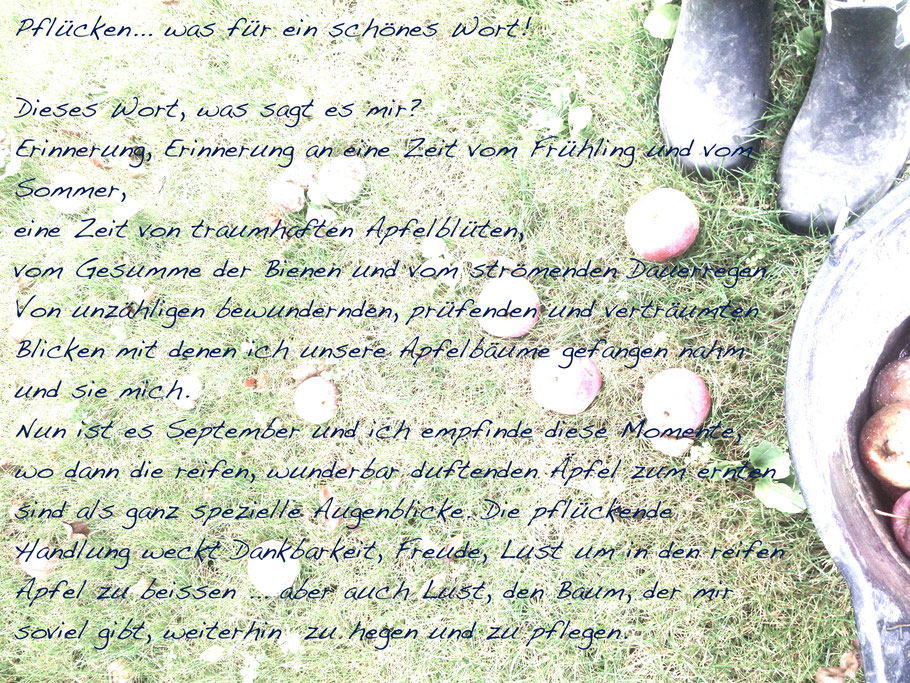 Pflücken... was für ein schönes Wort!
Dieses Wort, was sagt es mir?
Erinnerung, Erinnerung an eine Zeit vom Frühling und vom
Sommer,
eine Zeit von traumhaften Apfelblüten,
vom Gesumme der Bienen und vom strömenden Dauerregen.
Von unzähligen bewundernden, prüfenden und verträumten
Blicken mit denen ich unsere Apfelbäume gefangen nahm
und sie mich.
Nun ist es September und ich empfinde diese Momente,
wo dann die reifen, wunderbar duftenden Äpfel zum ernten
sind als ganz spezielle Augenblicke. Die pflückende
Handlung weckt Dankbarkeit, Freude, Lust um in den reifen
Apfel zu beissen ... aber auch Lust, den Baum, der mir
soviel gibt, weiterhin zu hegen und zu pflegen.